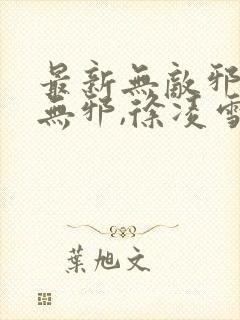 最新無敵邪
無邪,徐凌雪
葉旭文